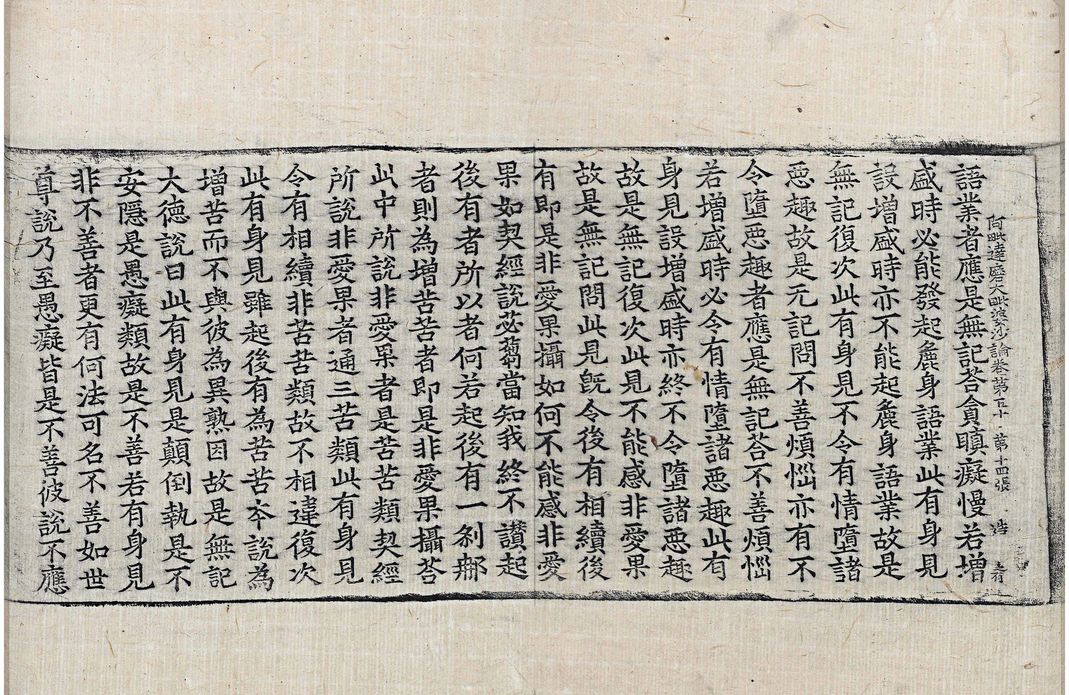 阿毗達磨大毗婆沙論卷第五十 第十四張 造
語業者應是無記荅貪瞋癡慢若增
盛時必能發起麁身語業此有身見
設增盛時亦不能起麁身語業故是
無記復次此有身見不令有情墮諸
惡趣故是无記問不善煩惱亦有不
令墮惡趣者應是無記荅不善煩惱
若增盛時必令有情墮諸惡趣此有
身見設增盛時亦終不令墮諸惡趣
故是無記復次此見不能感非愛果
故是無記問此見旣令後有相續後
有即是非愛果攝如何不能感非愛
果如契經說苾蒭當知我終不讃起
後有者所以者何若起後有一剎那
者則為增苦苦者即是非愛果攝荅
此中所說非愛果者是苦苦類契經
所說非愛果者通三苦類此有身見
令有相續非苦苦類故不相違復次
此有身見雖起後有為苦苦夲說為
增苦而不與彼為異熟因故是無記
大德說曰此有身見是顛倒執是不
安隱是愚癡類故是不善若有身見
非不善者更有何法可名不善如世
尊說乃至愚癡皆是不善彼說不應